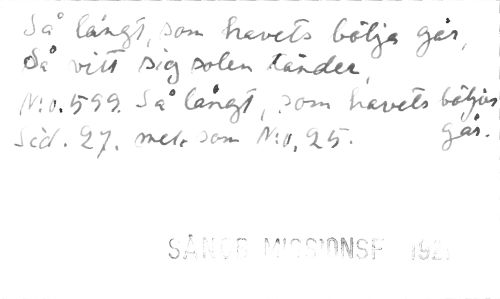 Så långt, som havets bölja går,
Så vitt sig solen tänder,
N:o. 599. Så långt, som havets böljor
Sid. 27. mel. som N:o, 25. går.
SÅNGB MISSIONSF 192